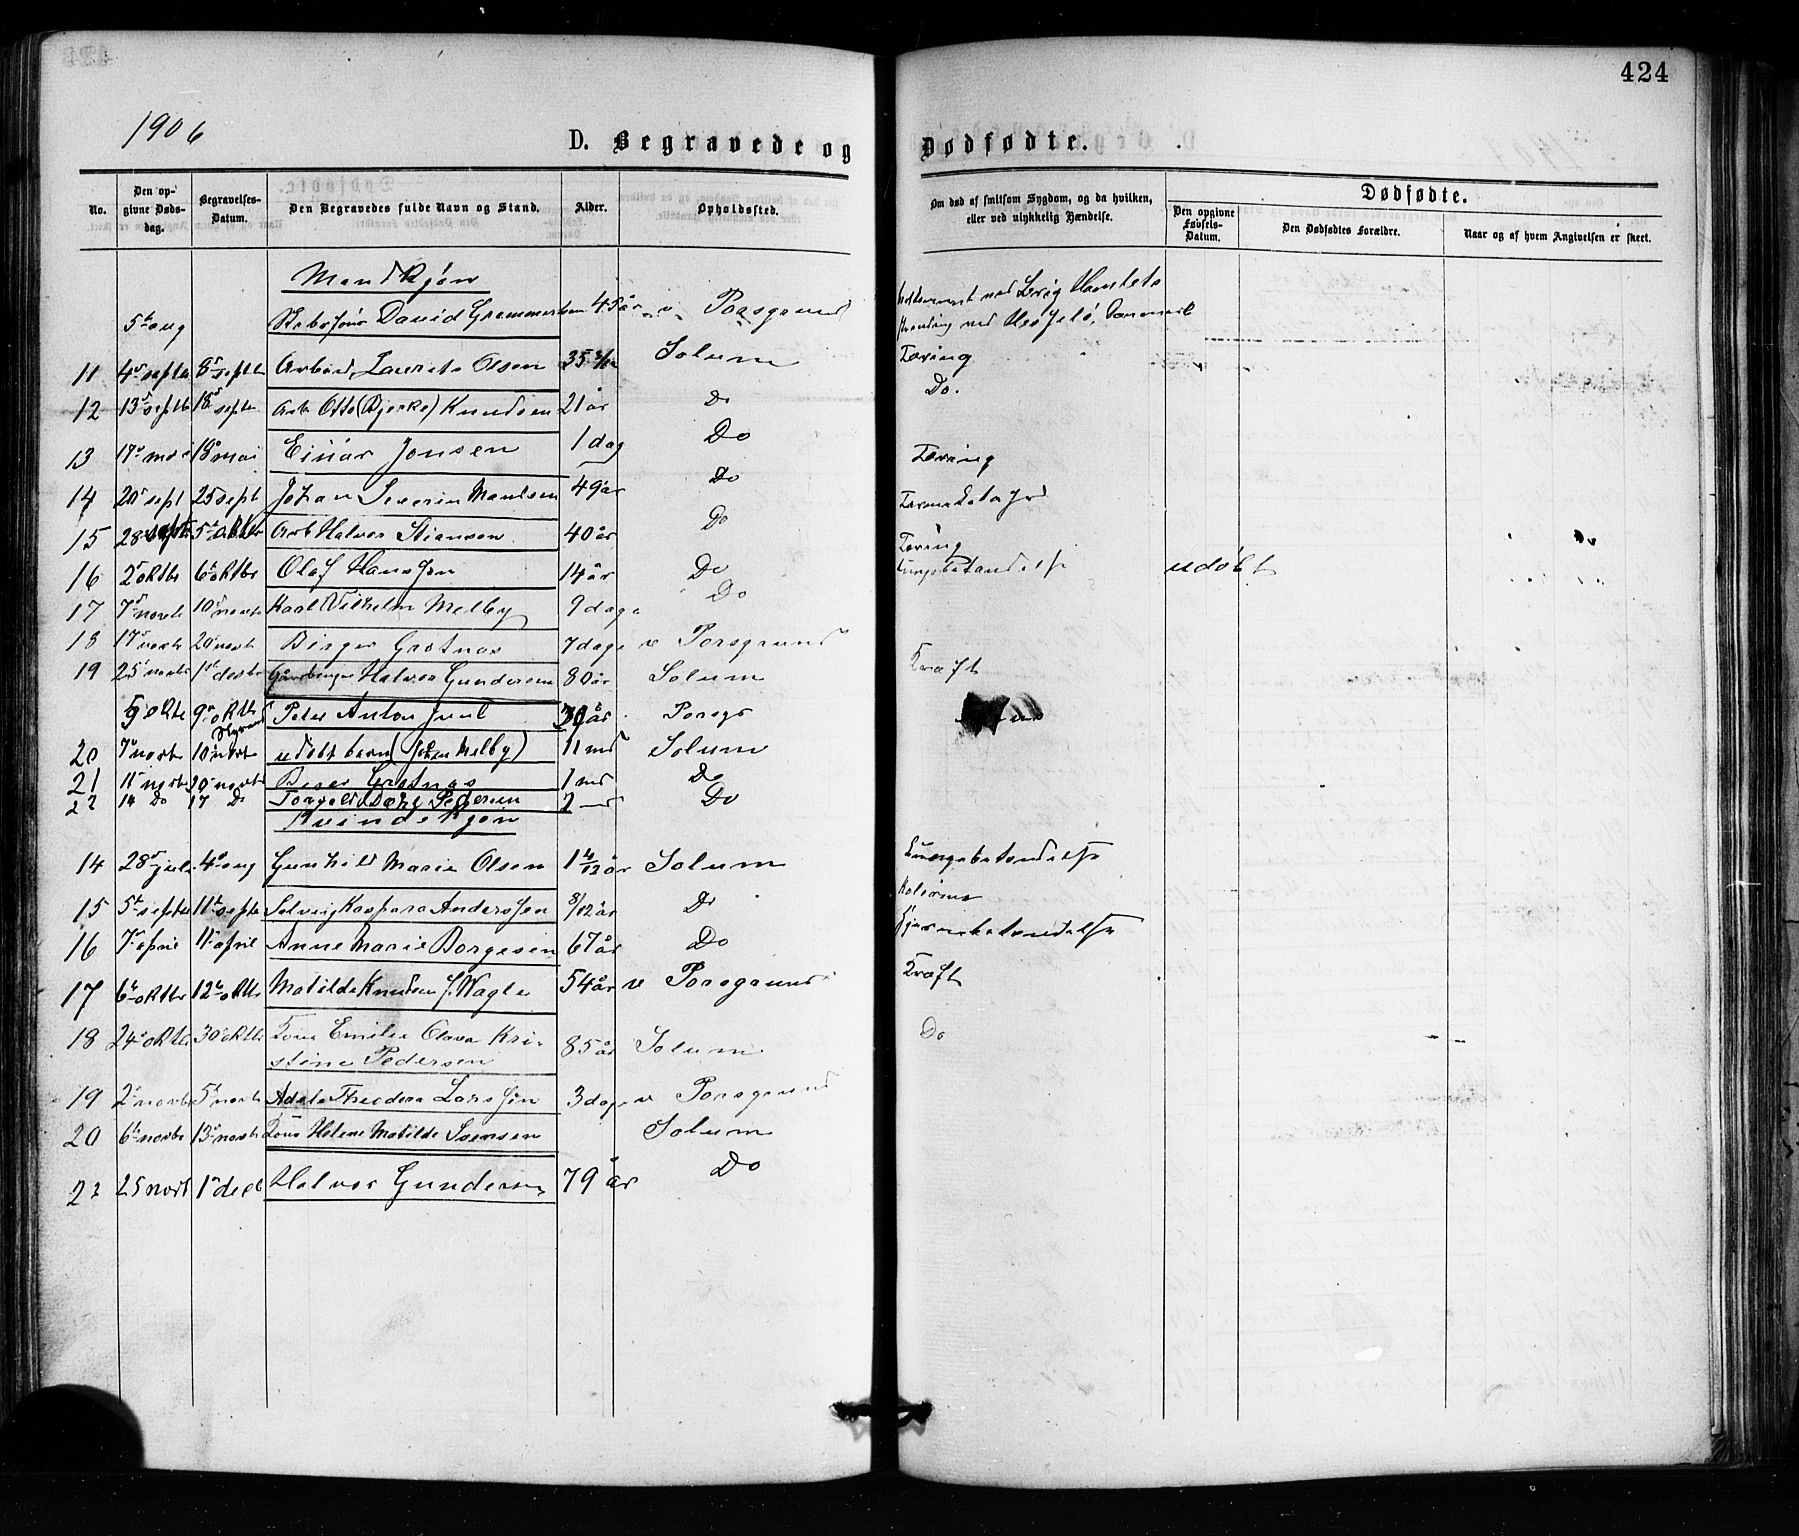 424
1906
D. Begravede og Dødfødte.
No. Den opgivne Dødsdag. Begravelses-Datum. Den Begravedes fulde Navn og Stand. Alder. Opholdssted. Om død af smitsom Sygdom, og da hvilken, eller ved ulykkelig Hændelse. Dødfødte.
Den opgivne Fødsels-Datum. Den Dødfødtes Forældre. Naar og af hvem Angivelsen er skeet.
Mandkjøn
5t aug David Grammersen 45 år v. Porsgrund ved Brig Hamlets
ved Danmark
11 4 septbr 8 septbr Laurits Olsen 35 Solum Tæring
12 13 septb 18 septbr Arb Otto (Bjerke) Knudsen 21 år Do Do.
13 17 mai 18 mai Einar Jonsen 1 dag Do
14 20 sept 25 sept Johan Severin Madsen 49 år Do Tæring
15 28 sept 5t oktbr Arb Halvor Stiansen 40 år Do
16 2 oktbr 6t oktbr Olaf Hanssen 14 år Do Tæring
17 7 novbr 10 novbr Karl Vilhelm Melby 9 dage Do Lungebetændelse udøbt
18 17 novbr 20 novbr Birger Grotnæs 7 dage v Porsgrund
19 25 novbr 1st desbr Halvor Gundersen 80 år Solum Kræft
5 oktb 9 oktb Peter Anton Juul år Porsgr
20 7 novbr 10 novbr udøbt barn (Johan Melby) 11 md Solum
21 11 novbr 20 novbr Grotnæs 1 md Do
22 14 Do 17 Do Pedersen 2 Do
Kvindekjøn
14 28 juli 4 aug Gunhild Marie Olsen 1 4/12 år Solum Lungebetændelse
15 5t septbr 11t septbr Solveig Kaspara Anderssen 8/12 år Do Kolerine
16 7 april 11 april Anne Marie Borgesen 67 år Do
17 6t oktbr 12t oktbr Matilde Knudsen f. Wagle 54 år v Porsgrund Kræft
18 24 oktbr 30 oktbr Kone Emilie Olava Kristine Pedersen 85 år Solum Do
19 2 novbr 5t novbr Adele Theodora Larssen 3 dage v Porsgrund
20 6t novbr 13 novbr Kone Helene Matilde Svensen Solum
22 25 novb 1 decb Halvor Gundersen 79 år Do